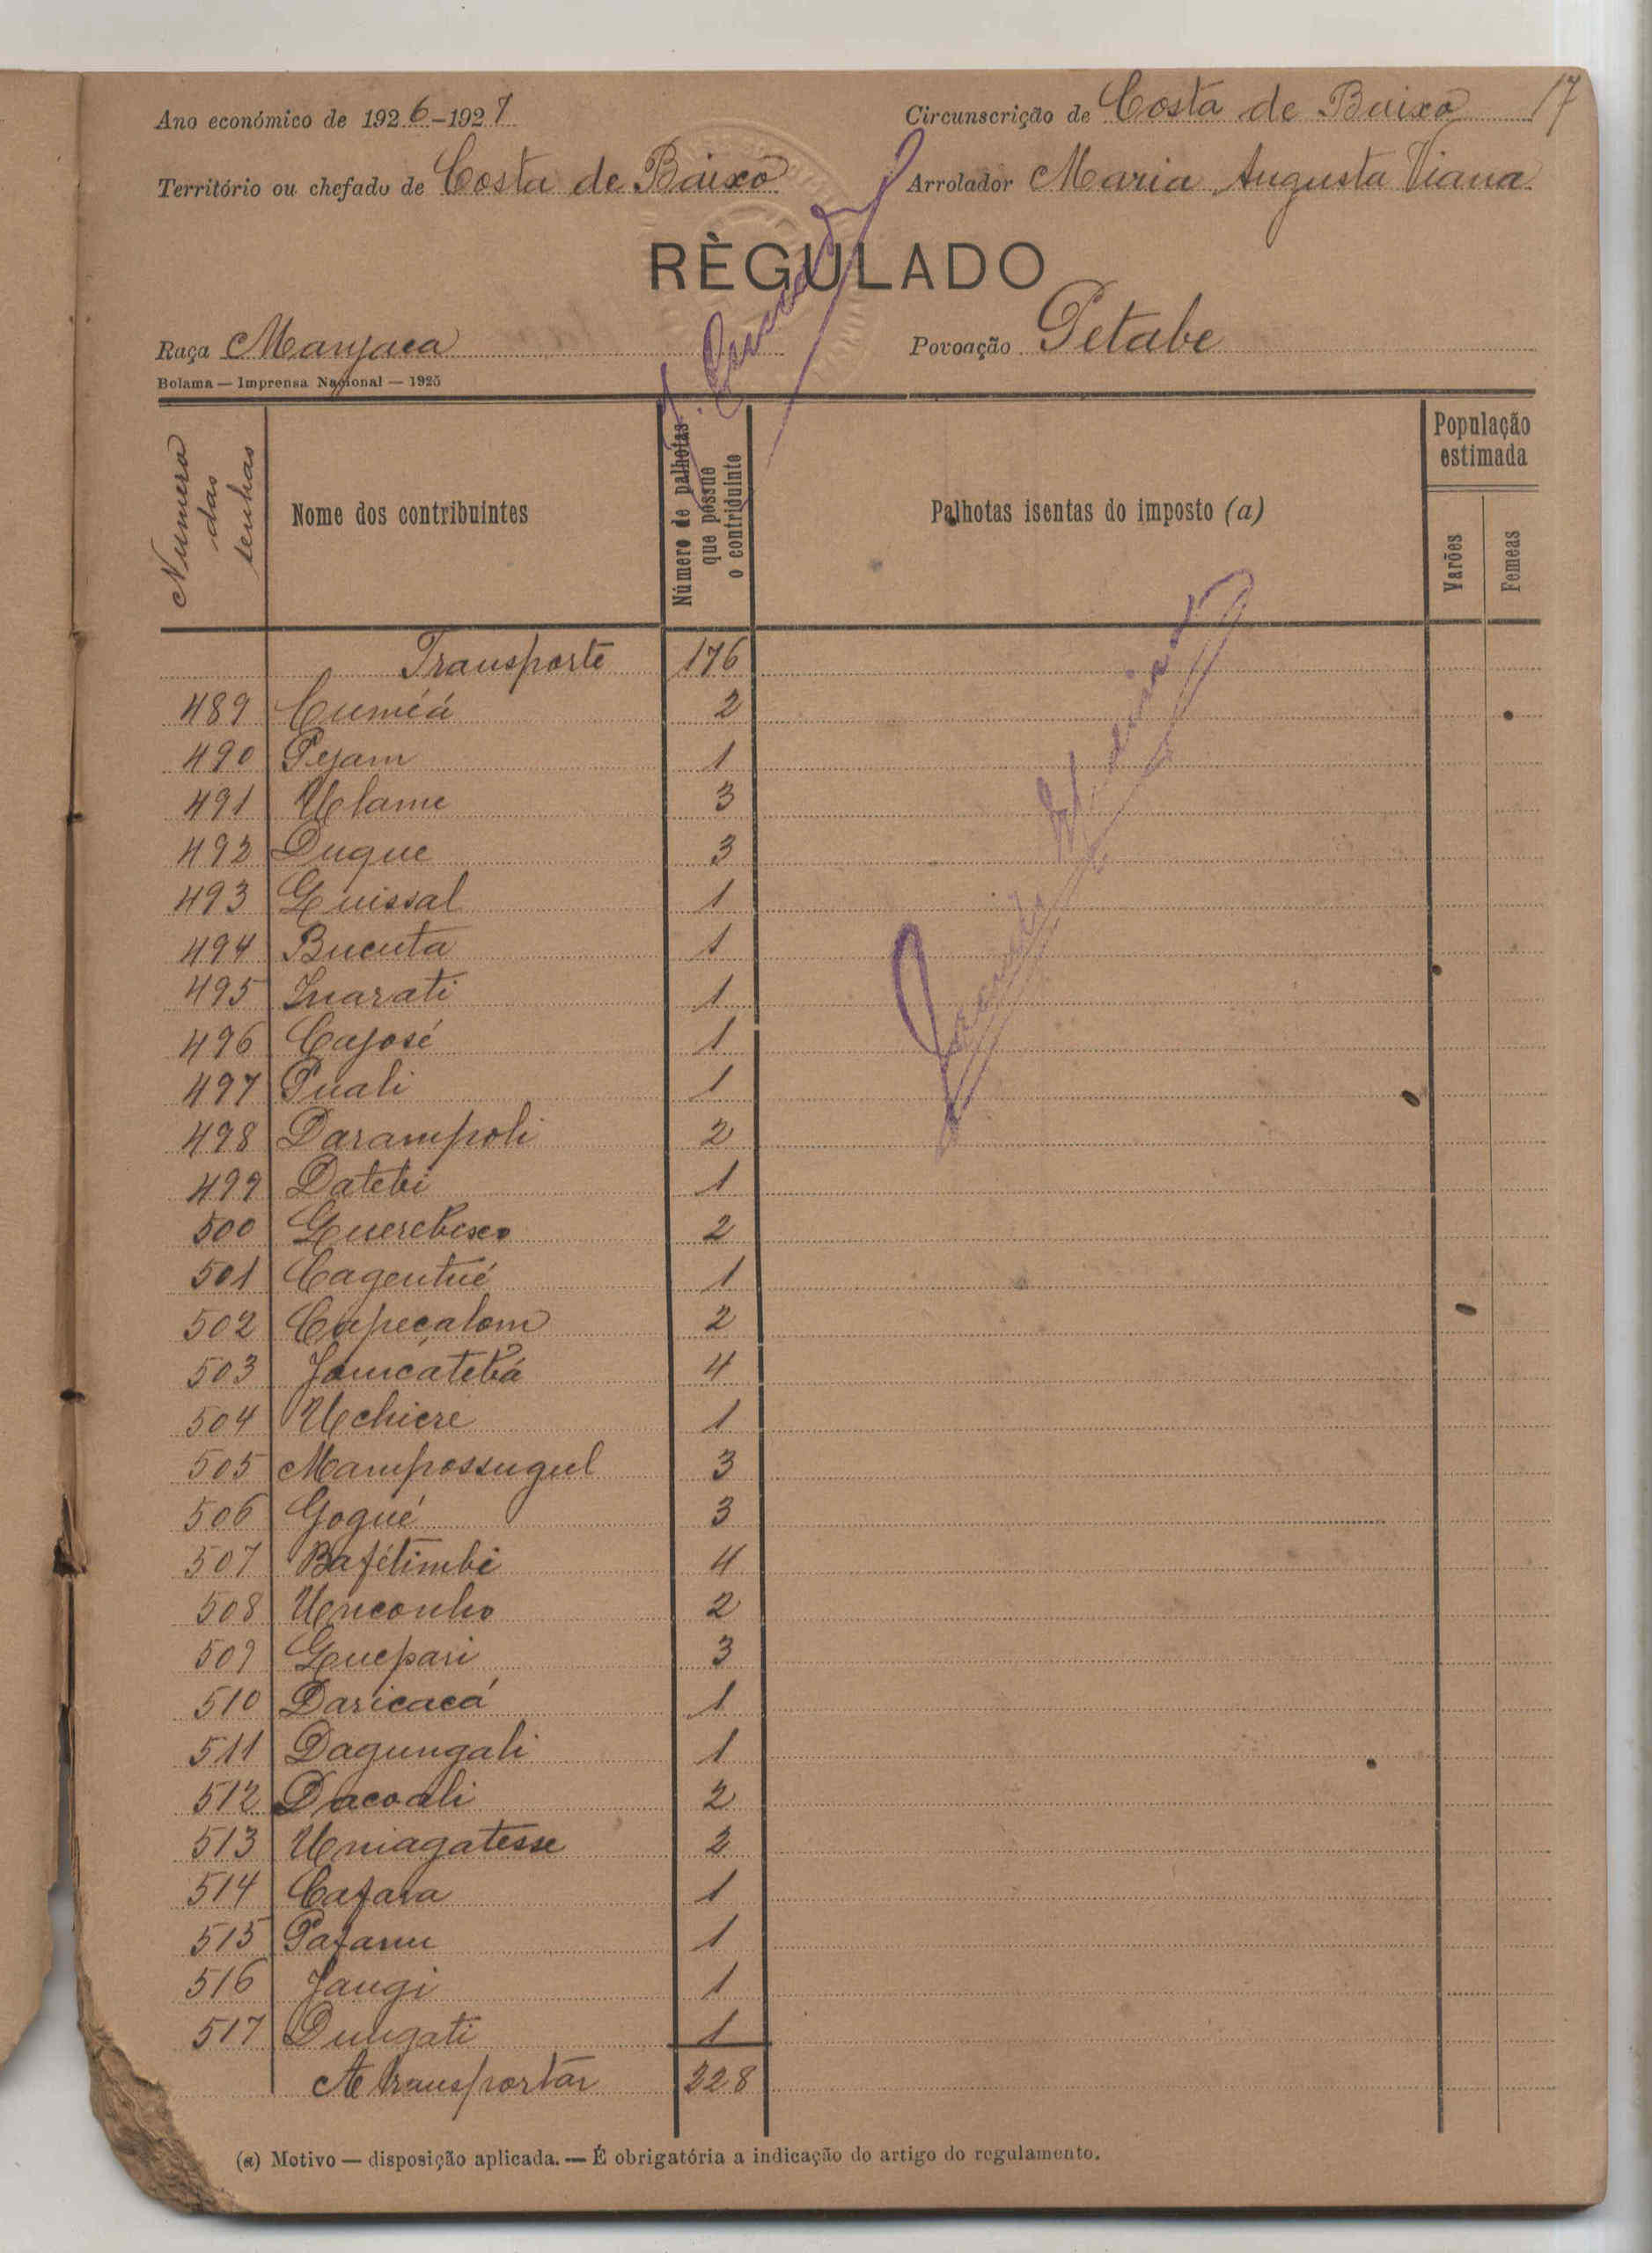 17
Ano económico de 1926-1927 Circunscrição de Costa de Baixo
Território ou chefado de Costa de Baixo Arrolador Maria Augusta Viana
RÈGULADO
Raça Manjaca Povoação Petabe
Bolama — Imprensa Nacional — 1925
Numero das senhas
Nome dos contribuintes
Número de palhotas que possue o contriduinte
Palhotas isentas do imposto (a)
População estimada
Varões Femeas
Transporte 176
489 Cuméá 2
490 Pejam 1
491 Ulame 3
492 Duque 3
493 Guissal 1
494 Bucuta 1
495 Inarati 1
496 Cajosé 1
497 Puali 1
498 Darampoli 2
499 Datebi 1
500 2
501 Cagentué 1
502 Capeçalom 2
503 4
504 Uchiere 1
505 Mampossugul 3
506 Gogué 3
507 Bafétimbi 4
508 Unconho 2
509 Guepari 3
510 Daricacá 1
511 Dagungali 1
512 Dacoali 2
513 Uniagatesse 2
514 Cafara 1
515 Pafanu 1
516 Jangi 1
517 Dungati 1
A transportar 228
(a) Motivo — disposição aplicada. — É obrigatória a indicação do artigo do regulamento.